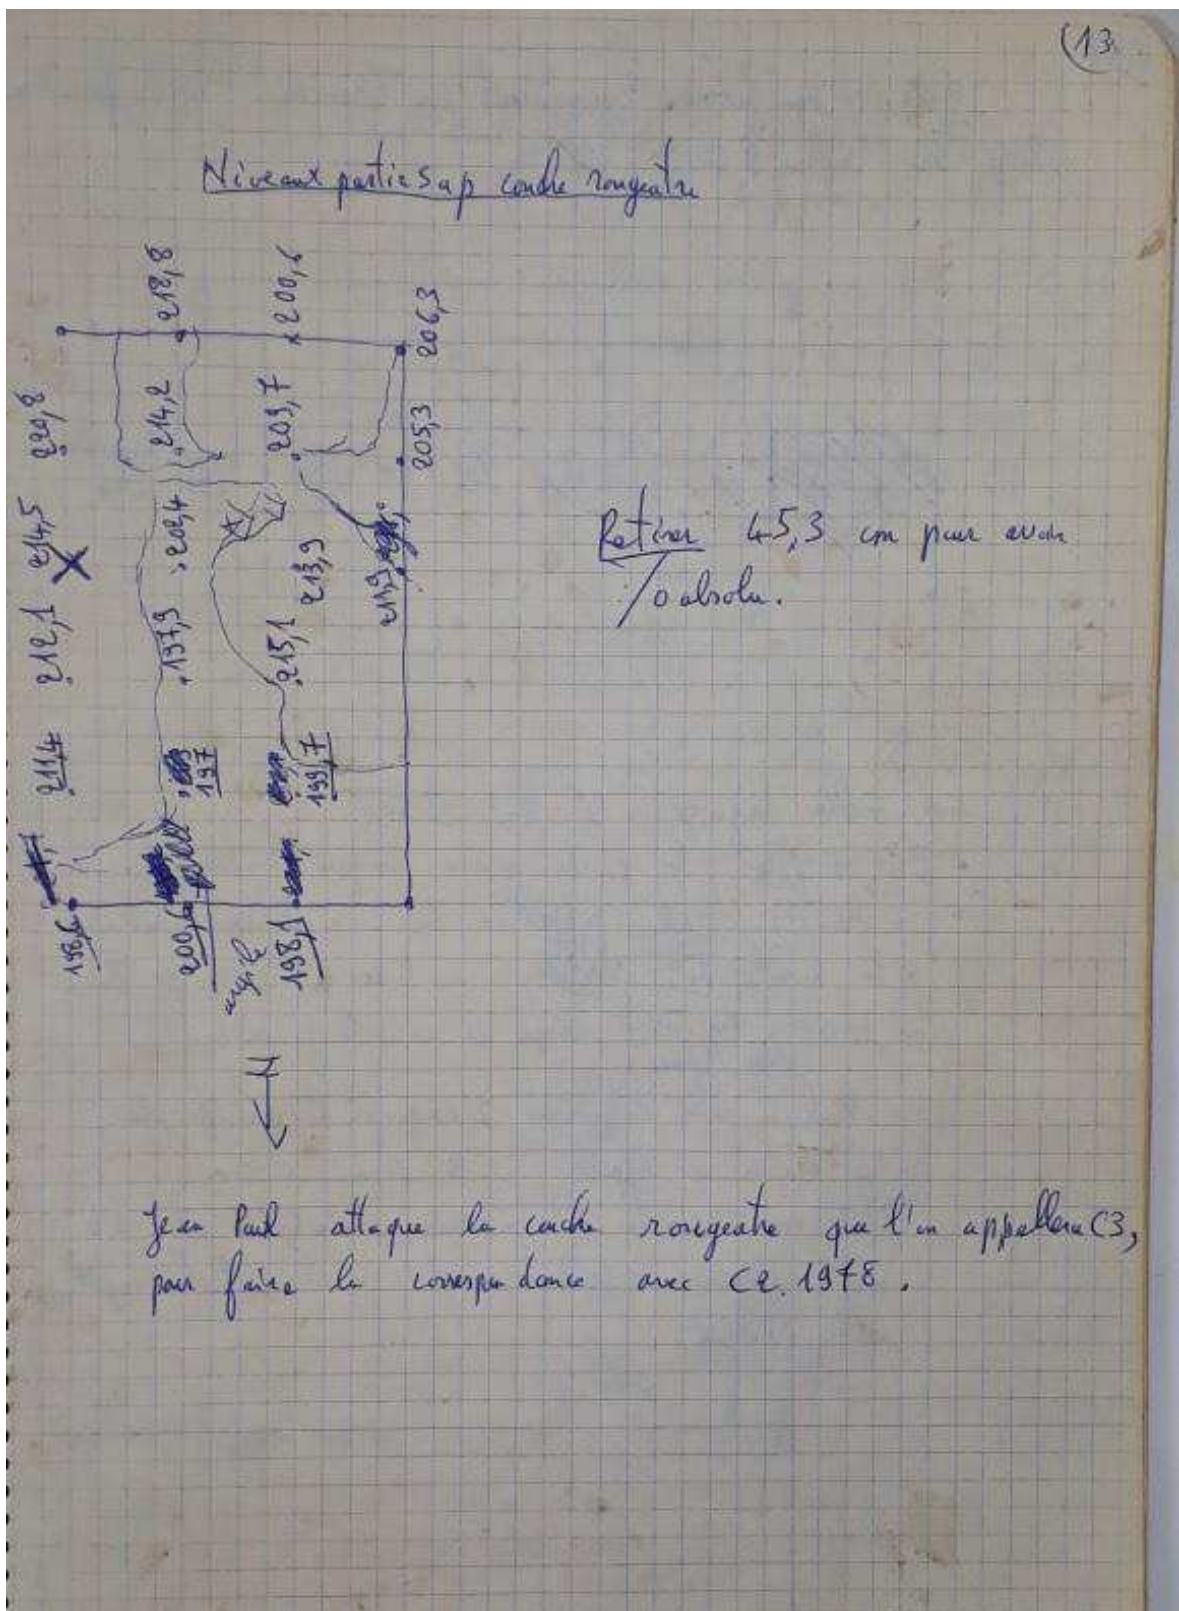 (13
Niveaux partie Sap couche rougeatre
218,8
200,6
206,3
220,8
214,2
209,7
205,3
214,5
202,4
213,9
213,9
212,1
197,9
215,1
211,4
197
199,7
198,6
200,6
198,1
argile
N
Retirer 45,3 cm pour avoir
/o absolu.
Jean Paul attaque la couche rougeatre que l'on appellera C3,
pour faire la correspondance avec C2. 1978.